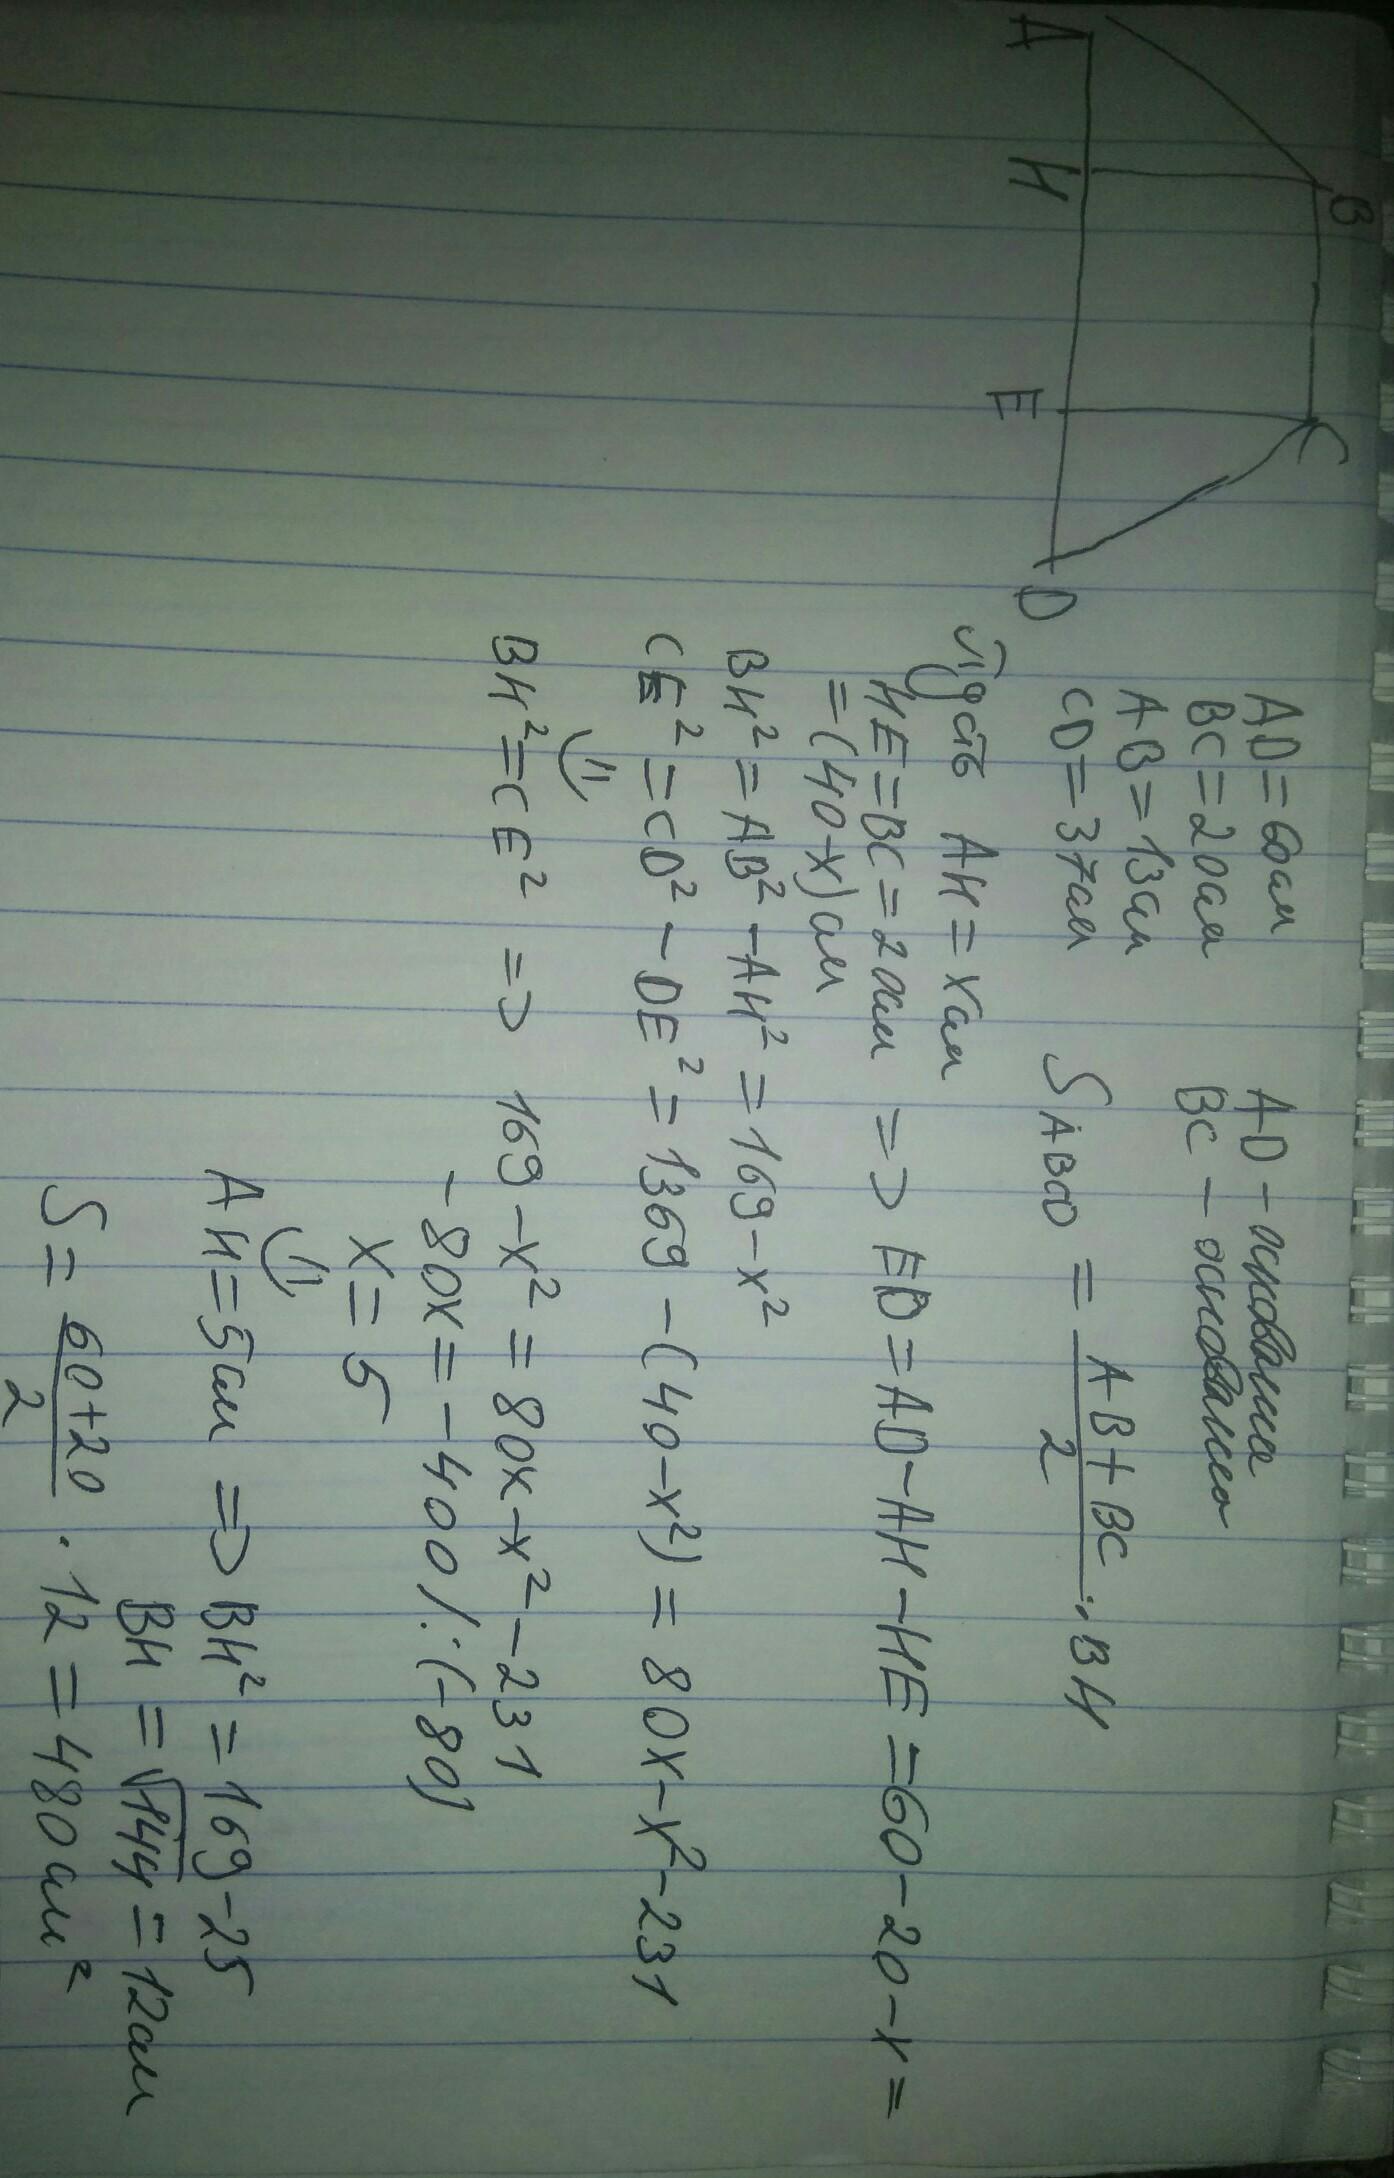 B C
A H E D
AD=60см AD - основание
BC=20см BC - основание
AB=13см
CD=37см S ABCD = AB+BC/2 · BH
Пусть AH=xсм
HE=BC=20см => ED=AD-AH-HE=60-20-x=
=(40-x)см
BH²=AB²-AH²=169-x²
CE²=CD²-DE²=1369-(40-x²)=80x-x²-231
⇓
BH²=CE² => 169-x²=80x-x²-231
-80x=-400/:(-80)
x=5
⇓
AH=5см => BH²=169-25
BH=√144=12см
S=60+20/2 · 12=480см²